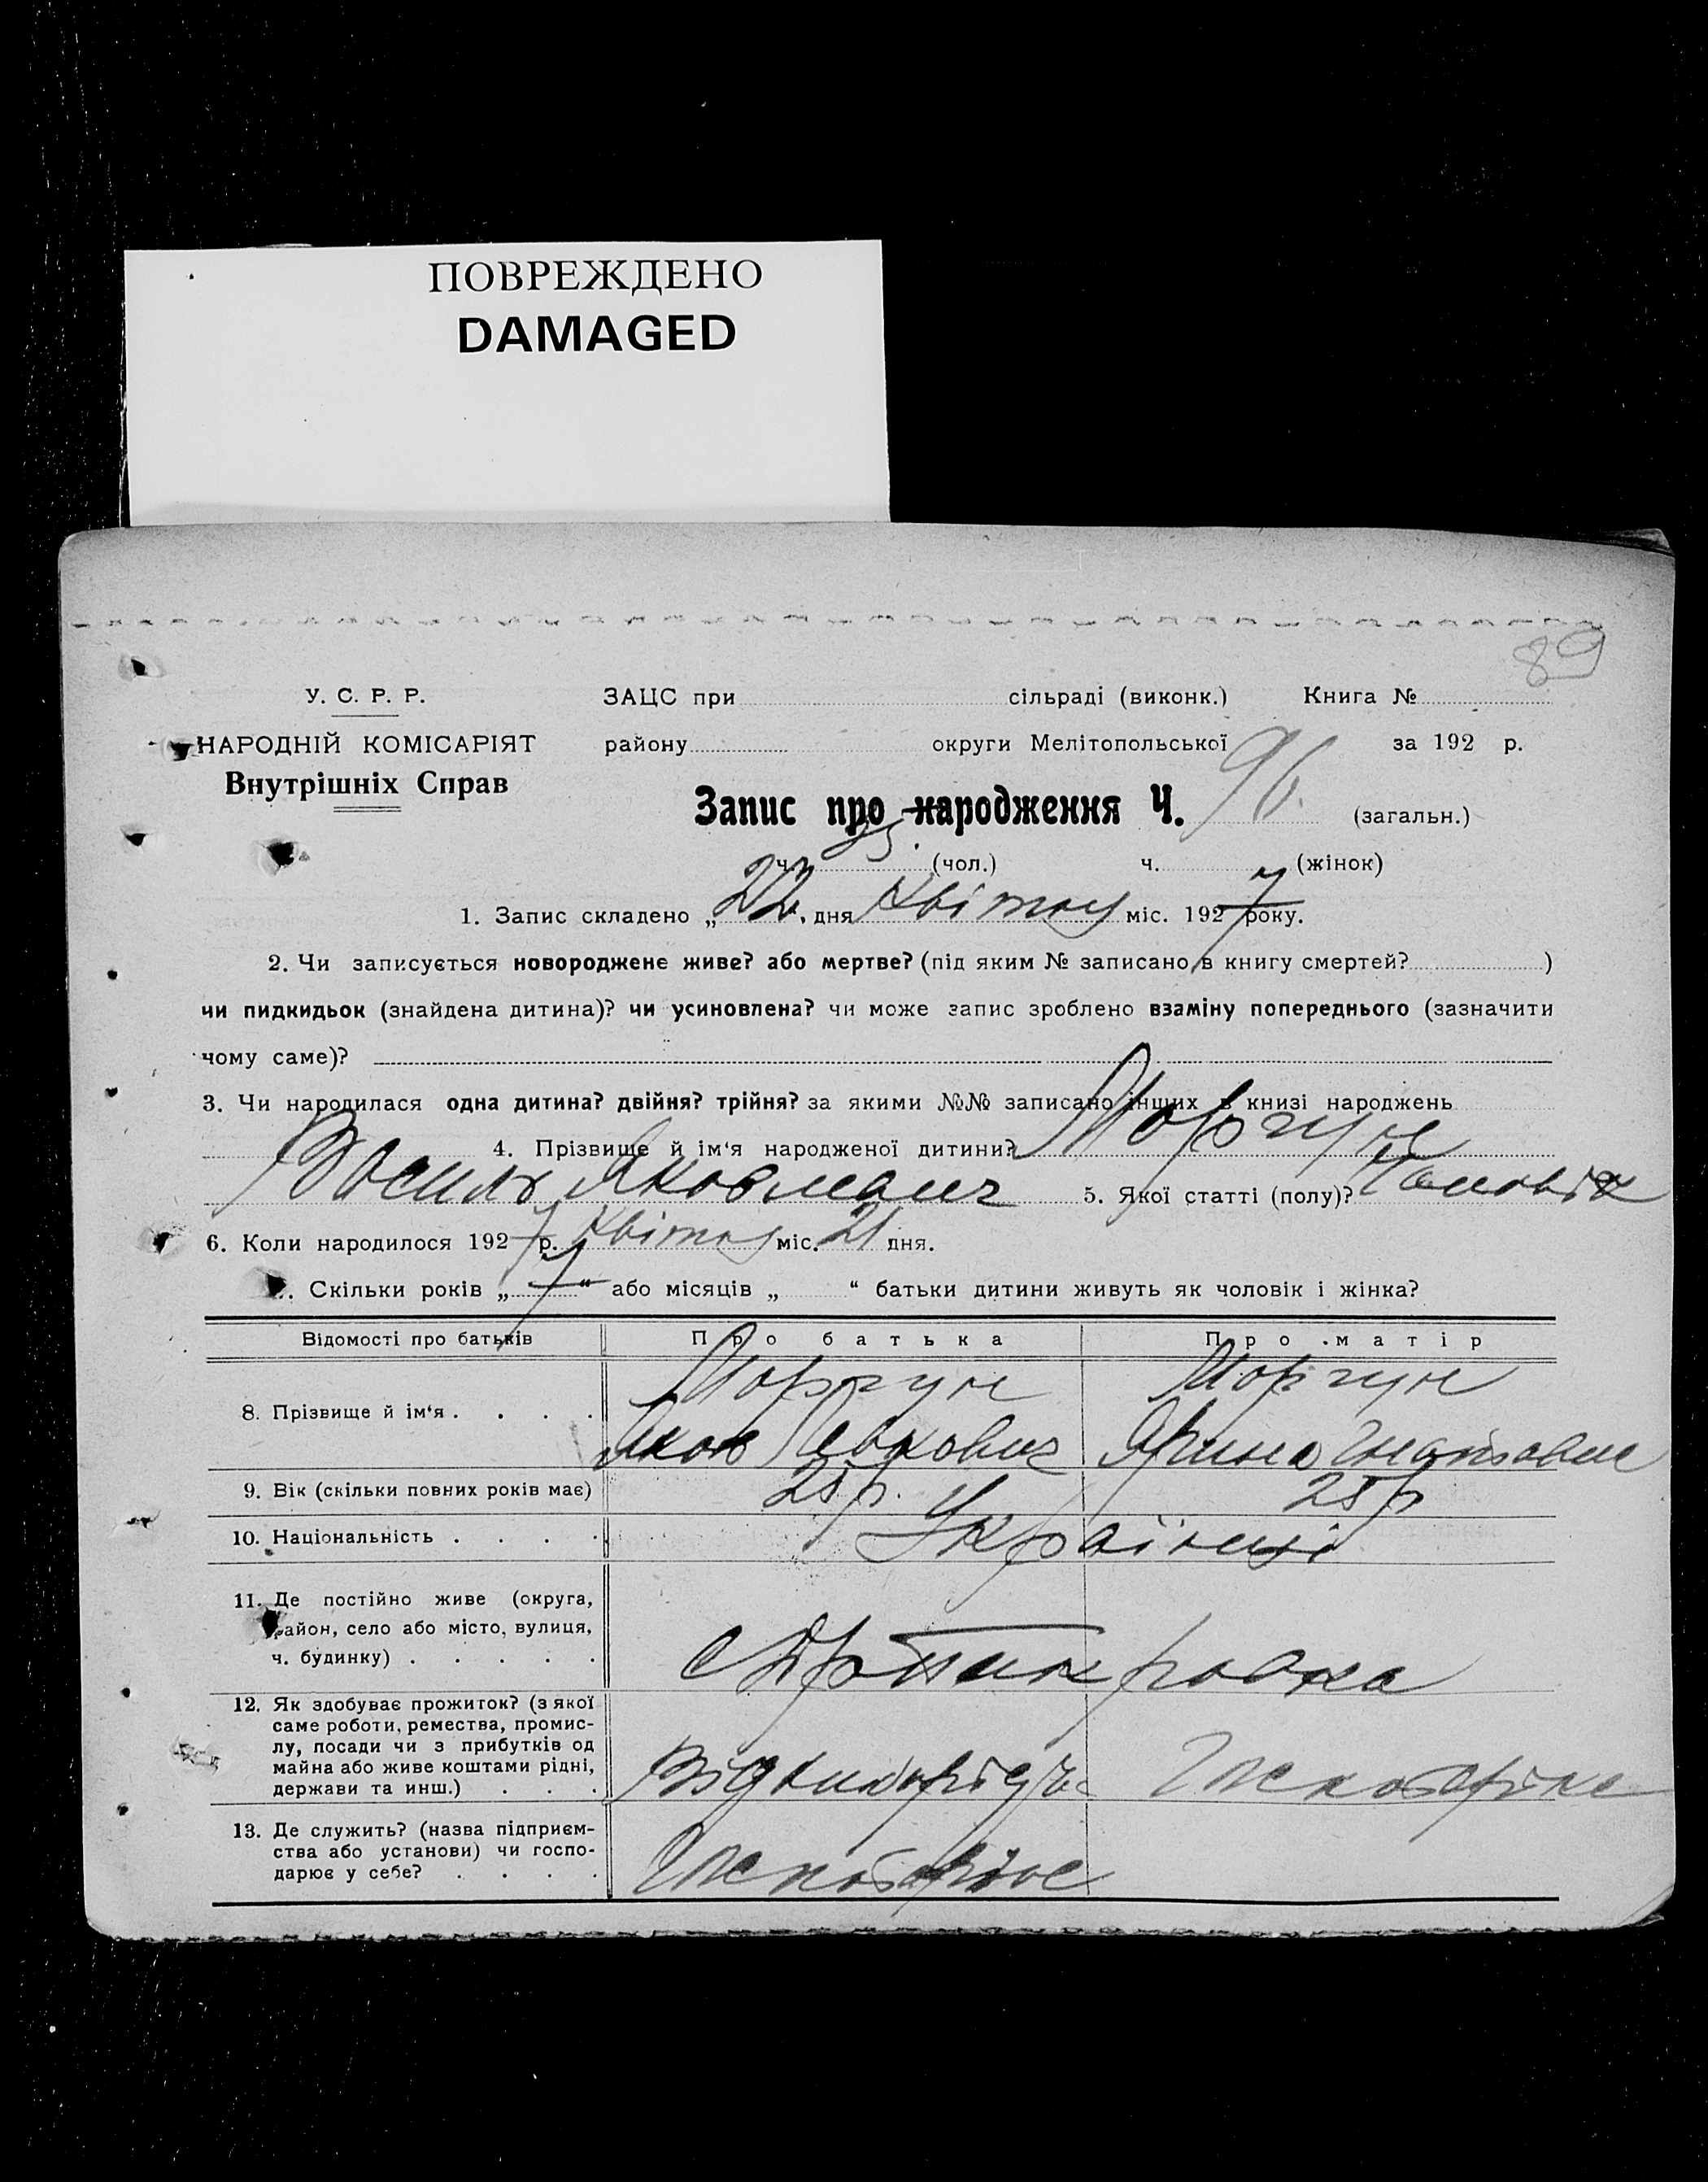 ПОВРЕЖДЕНО
DAMAGED
89
У. С. Р. Р.
ЗАЦС при сільраді (виконк.) Книга №
НАРОДНІЙ КОМІСАРІЯТ
району округи Мелітопольської за 192 р.
Внутрішніх Справ
Запис про народження Ч. 96. (загальн.)
ч. (чол.) ч. (жінок)
1. Запис складено „22„ дня Квітня міс. 1927 року.
2. Чи записується новороджене живе? або мертве? (під яким № записано в книгу смертей? )
чи пидкидьок (знайдена дитина)? чи усиновлена? чи може запис зроблено взаміну попереднього (зазначити
чому саме)?
3. Чи народилася одна дитина? двійня? трійня? за якими №№ записано інших в книзі народжень
4. Прізвище й ім‘я народженої дитини? Моргун
Василь Яковлевич 5. Якої статті (полу)? Чоловік
6. Коли народилося 1927 р. Квітня міс. 21 дня.
Скільки років „ 7 “ або місяців „ “ батьки дитини живуть як чоловік і жінка?
Відомості про батьків Про батька Про матір
8. Прізвище й ім‘я . . . . Моргун Моргун
Яков Левкович Ярина Гнатовна
9. Вік (скільки повних років має) 25 р. 25 р
10. Національність . . . . Українці
11. Де постійно живе (округа,
район, село або місто, вулиця,
ч. будинку) . . . . .
12. Як здобуває прожиток? (з якої
саме роботи, ремества, промис-
лу, посади чи з прибутків од
майна або живе коштами рідні,
держави та инш.) . . .
Хліборобе
13. Де служить? (назва підприєм-
ства або установи) чи госпо-
дарює у себе? . . . .